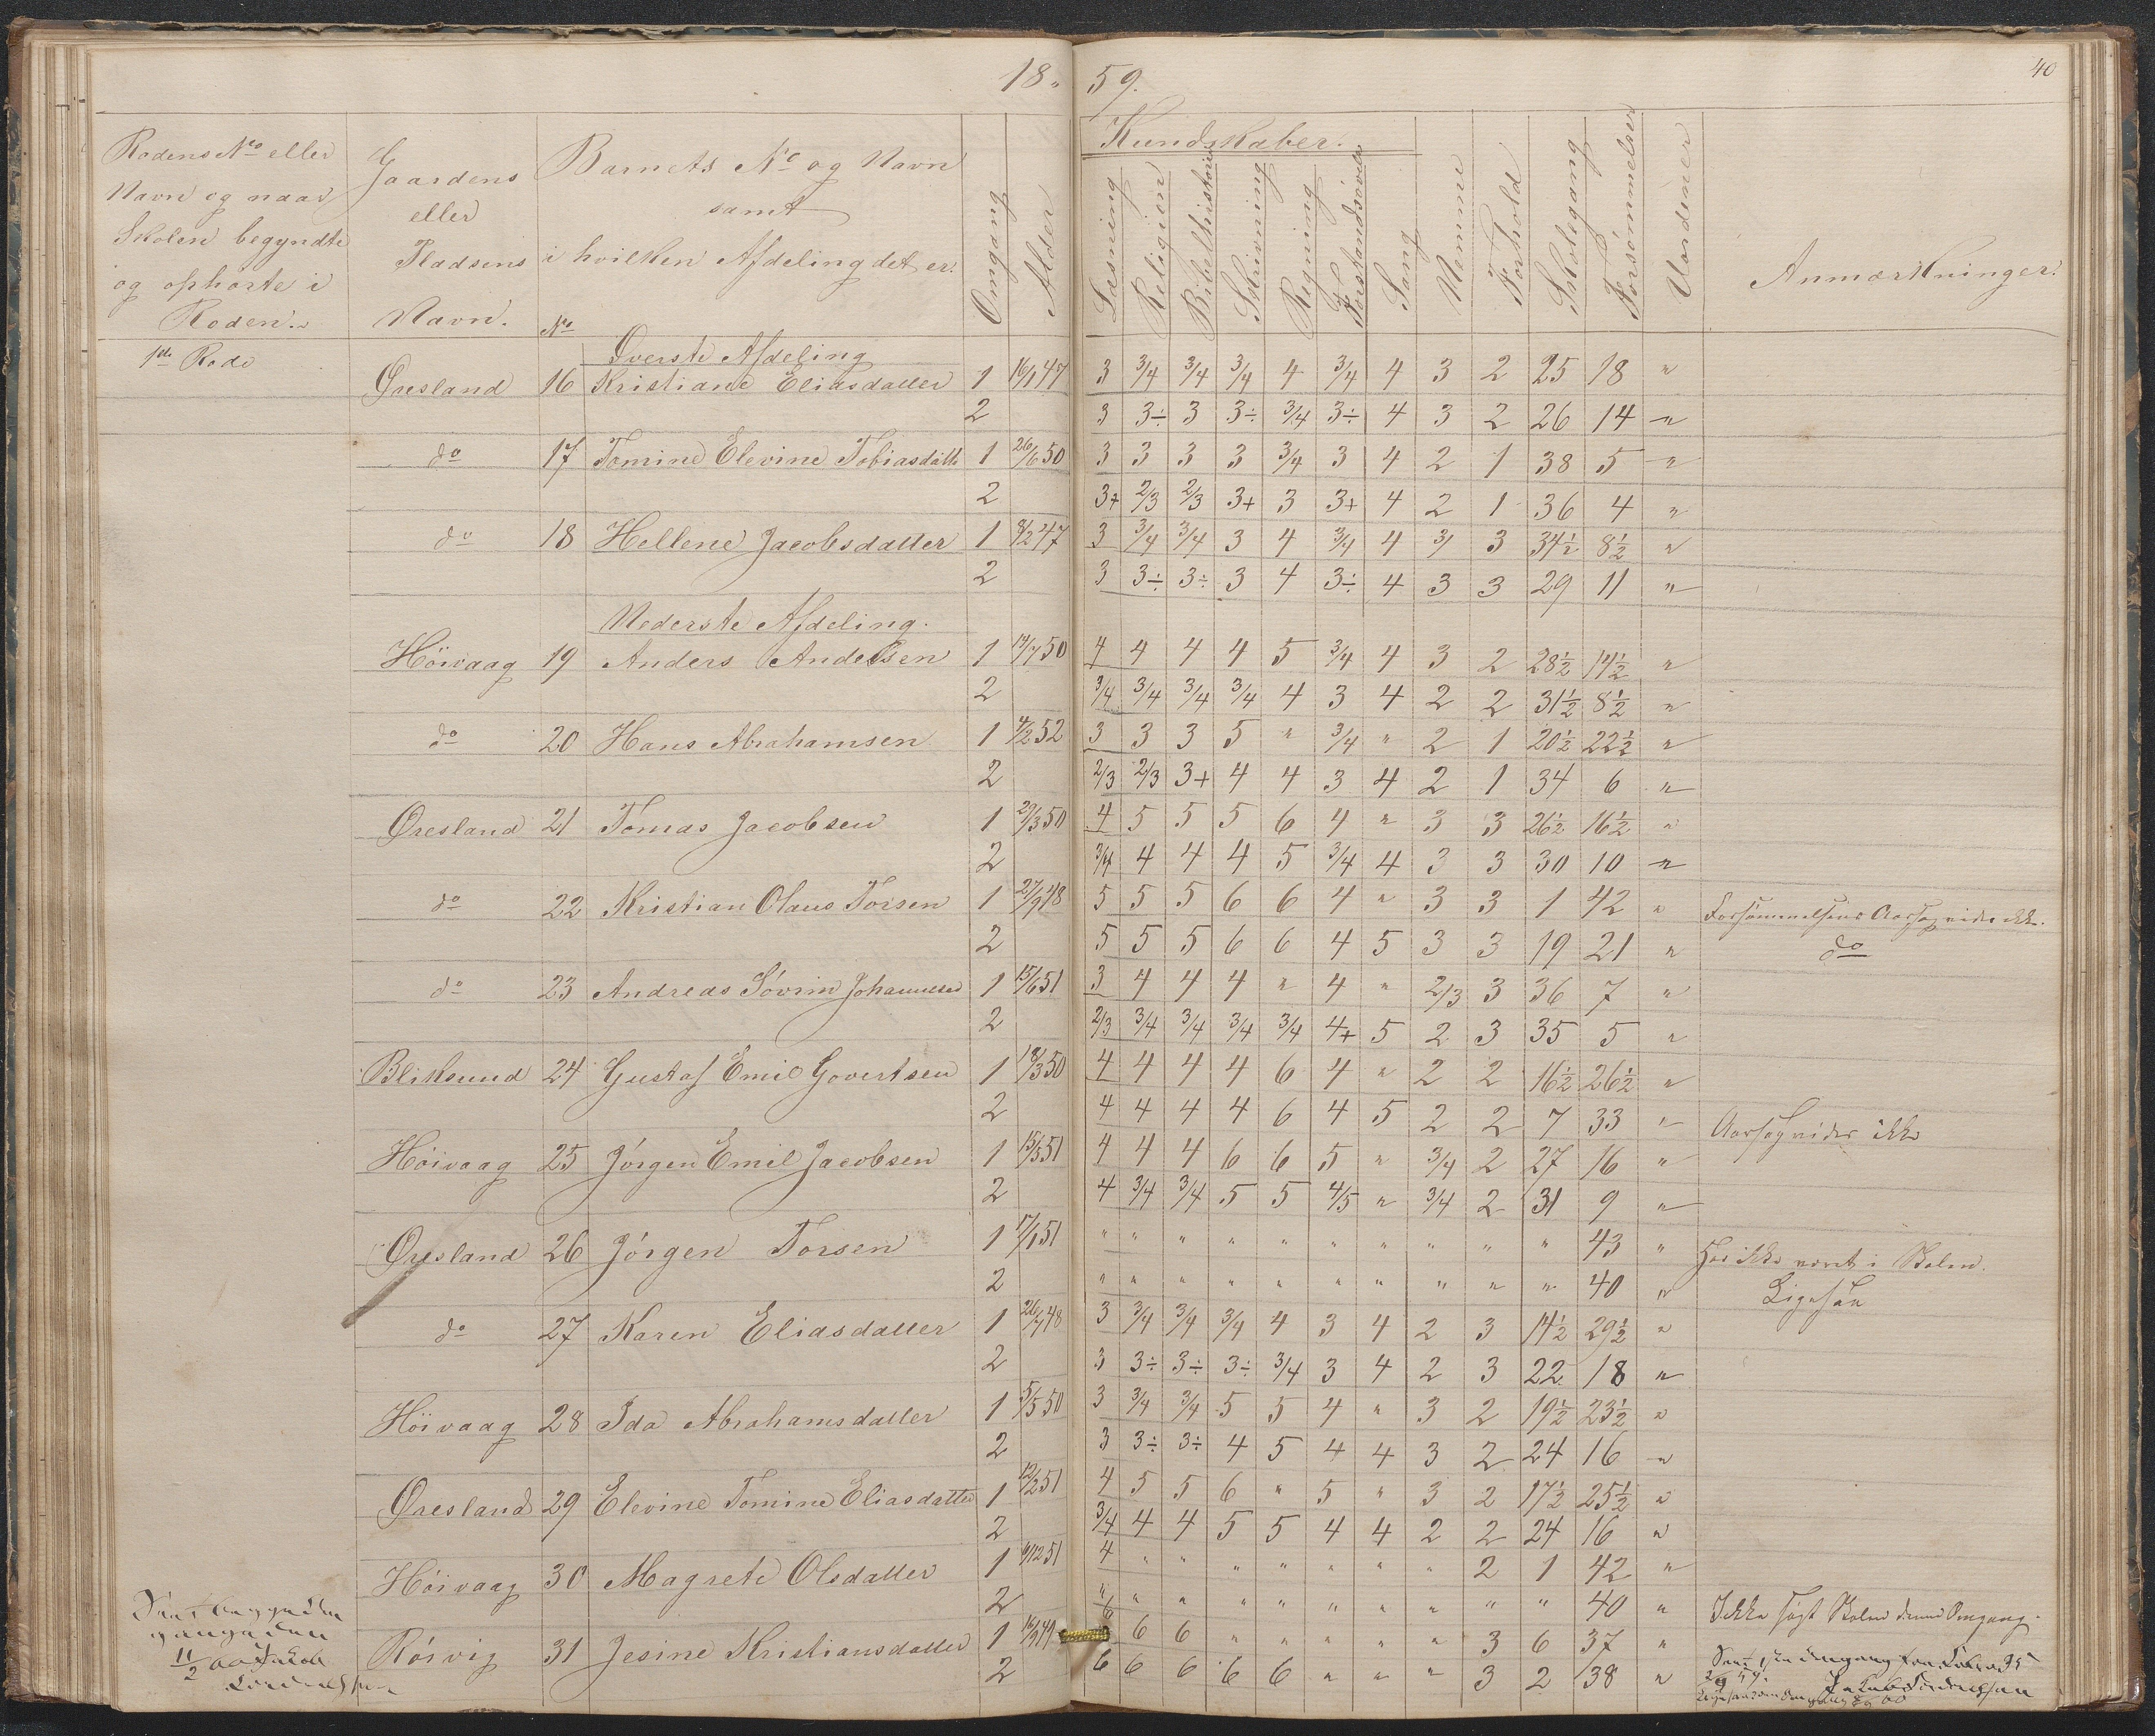 18 59.
40
Rodens No eller
Navn og naar
Skolen begyndte
og ophørte i
Roden.
Gaardens
eller
Pladsens
Navn.
Barnets No og Navn
samt
i hvilken Afdeling det er.
No
Omgang
Alder
Kundskaber.
Læsning
Religion
Bibelhistorie
Skrivning
Regning
Forstandsøvelse
Sang
Nemme
Forhold
Skolegang
Forsømmelser
Uordener
Anmærkninger.
1ste Rode
Øverste Afdeling
Øresland 16 Kristiane Eliasdatter 1 16/1 47 3 3/4 3/4 3/4 4 3/4 4 3 2 25 18 "
2 3 3÷ 3 3÷ 3/4 3÷ 4 3 2 26 14 "
do 17 Tomine Elevine Tobiasdattr 1 26/6 50 3 3 3 3 3/4 3 4 2 1 38 5 "
2 3+ 2/3 2/3 3+ 3 3+ 4 2 1 36 4 "
do 18 Hellene Jacobsdatter 1 8/2 47 3 3/4 3/4 3 4 3/4 4 3 3 34½ 8½ "
2 3 3÷ 3÷ 3 4 3÷ 4 3 3 29 11 "
Nederste Afdeling.
Höivaag 19 Anders Andersen 1 14/7 50 4 4 4 4 5 3/4 4 3 2 28½ 14½ "
2 3/4 3/4 3/4 3/4 4 3 4 2 2 31½ 8½ "
do 20 Hans Abrahamsen 1 4/2 52 3 3 3 5 " 3/4 " 2 1 20½ 22½ "
2 2/3 2/3 3+ 4 4 3 4 2 1 34 6 "
Øresland 21 Tomas Jacobsen 1 29/3 50 4 5 5 5 6 4 " 3 3 26½ 16½ "
2 3/4 4 4 4 5 3/4 4 3 3 30 10 "
do 22 Kristian Olaus Torsen 1 27/9 48 5 5 5 6 6 4 " 3 3 1 42 " Forsømmelsens Aarsag vides ikke.
2 5 5 5 6 6 4 5 3 3 19 21 " do
do 23 Andreas Sövrin Johannesen 1 15/6 51 3 4 4 4 " 4 " 2/3 3 36 7 "
2 2/3 3/4 3/4 3/4 3/4 4+ 5 2 3 35 5 "
Bliksund 24 Gustaf Emil Govertsen 1 18/3 50 4 4 4 4 6 4 " 2 2 16½ 26½ "
2 4 4 4 4 6 4 5 2 2 7 33 " Aarsag vides ikke
Höivaag 25 Jörgen Emil Jacobsen 1 15/3 51 4 4 4 6 6 5 " 3/4 2 27 16 "
2 4 3/4 3/4 5 5 4/5 " 3/4 2 31 9 "
Øresland 26 Jörgen Torsen 1 17/1 51 " " " " " " " " " " 43 " Har ikke været i Skolen.
2 " " " " " " " " " " 40 " Ligesaa
do 27 Karen Eliasdatter 1 26/7 48 3 3/4 3/4 3/4 4 3 4 2 3 14½ 29½ "
2 3 3÷ 3÷ 3÷ 3/4 3 4 2 3 22 18 "
Höivaag 28 Ida Abrahamsdatter 1 5/5 50 3 3/4 3/4 5 5 4 " 3 2 19½ 23½ "
2 3 3÷ 3÷ 4 5 4 4 3 2 24 16 "
Øresland 29 Elevine Tomine Eliasdatter 1 12/2 51 4 5 5 6 " 5 " 3 2 17½ 25½ "
2 3/4 4 4 5 5 4 4 2 2 24 16 "
Höivaag 30 Magrete Olsdatter 1 9/12 51 4 " " " " " " " 2 1 42 "
2 " " " " " " " " " " 40 " Ikke søgt Skolen denne Omgang.
Rörvig 31 Jesine Kristiansdatter 1 16/9 49 6 6 6 " " " " " 3 6 37 "
2 6 6 6 6 6 " " " 3 2 38 "
11/2 60